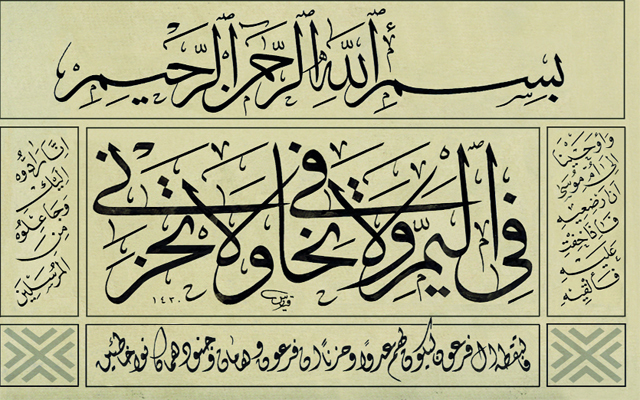 بسم الله الرحمن الرحيم
وأوحينا
إلى أم موسى
أن أرضعيه
فإذا خفت
عليه
فألقيه
في اليم ولا تخافي ولا تحزني
١٤٣٠
إنا رادوه
إليك
وجاعلوه
من
المرسلين
فالتقطه آل فرعون ليكون لهم عدوا وحزنا إن فرعون وهامان وجنودهما كانوا خاطئين